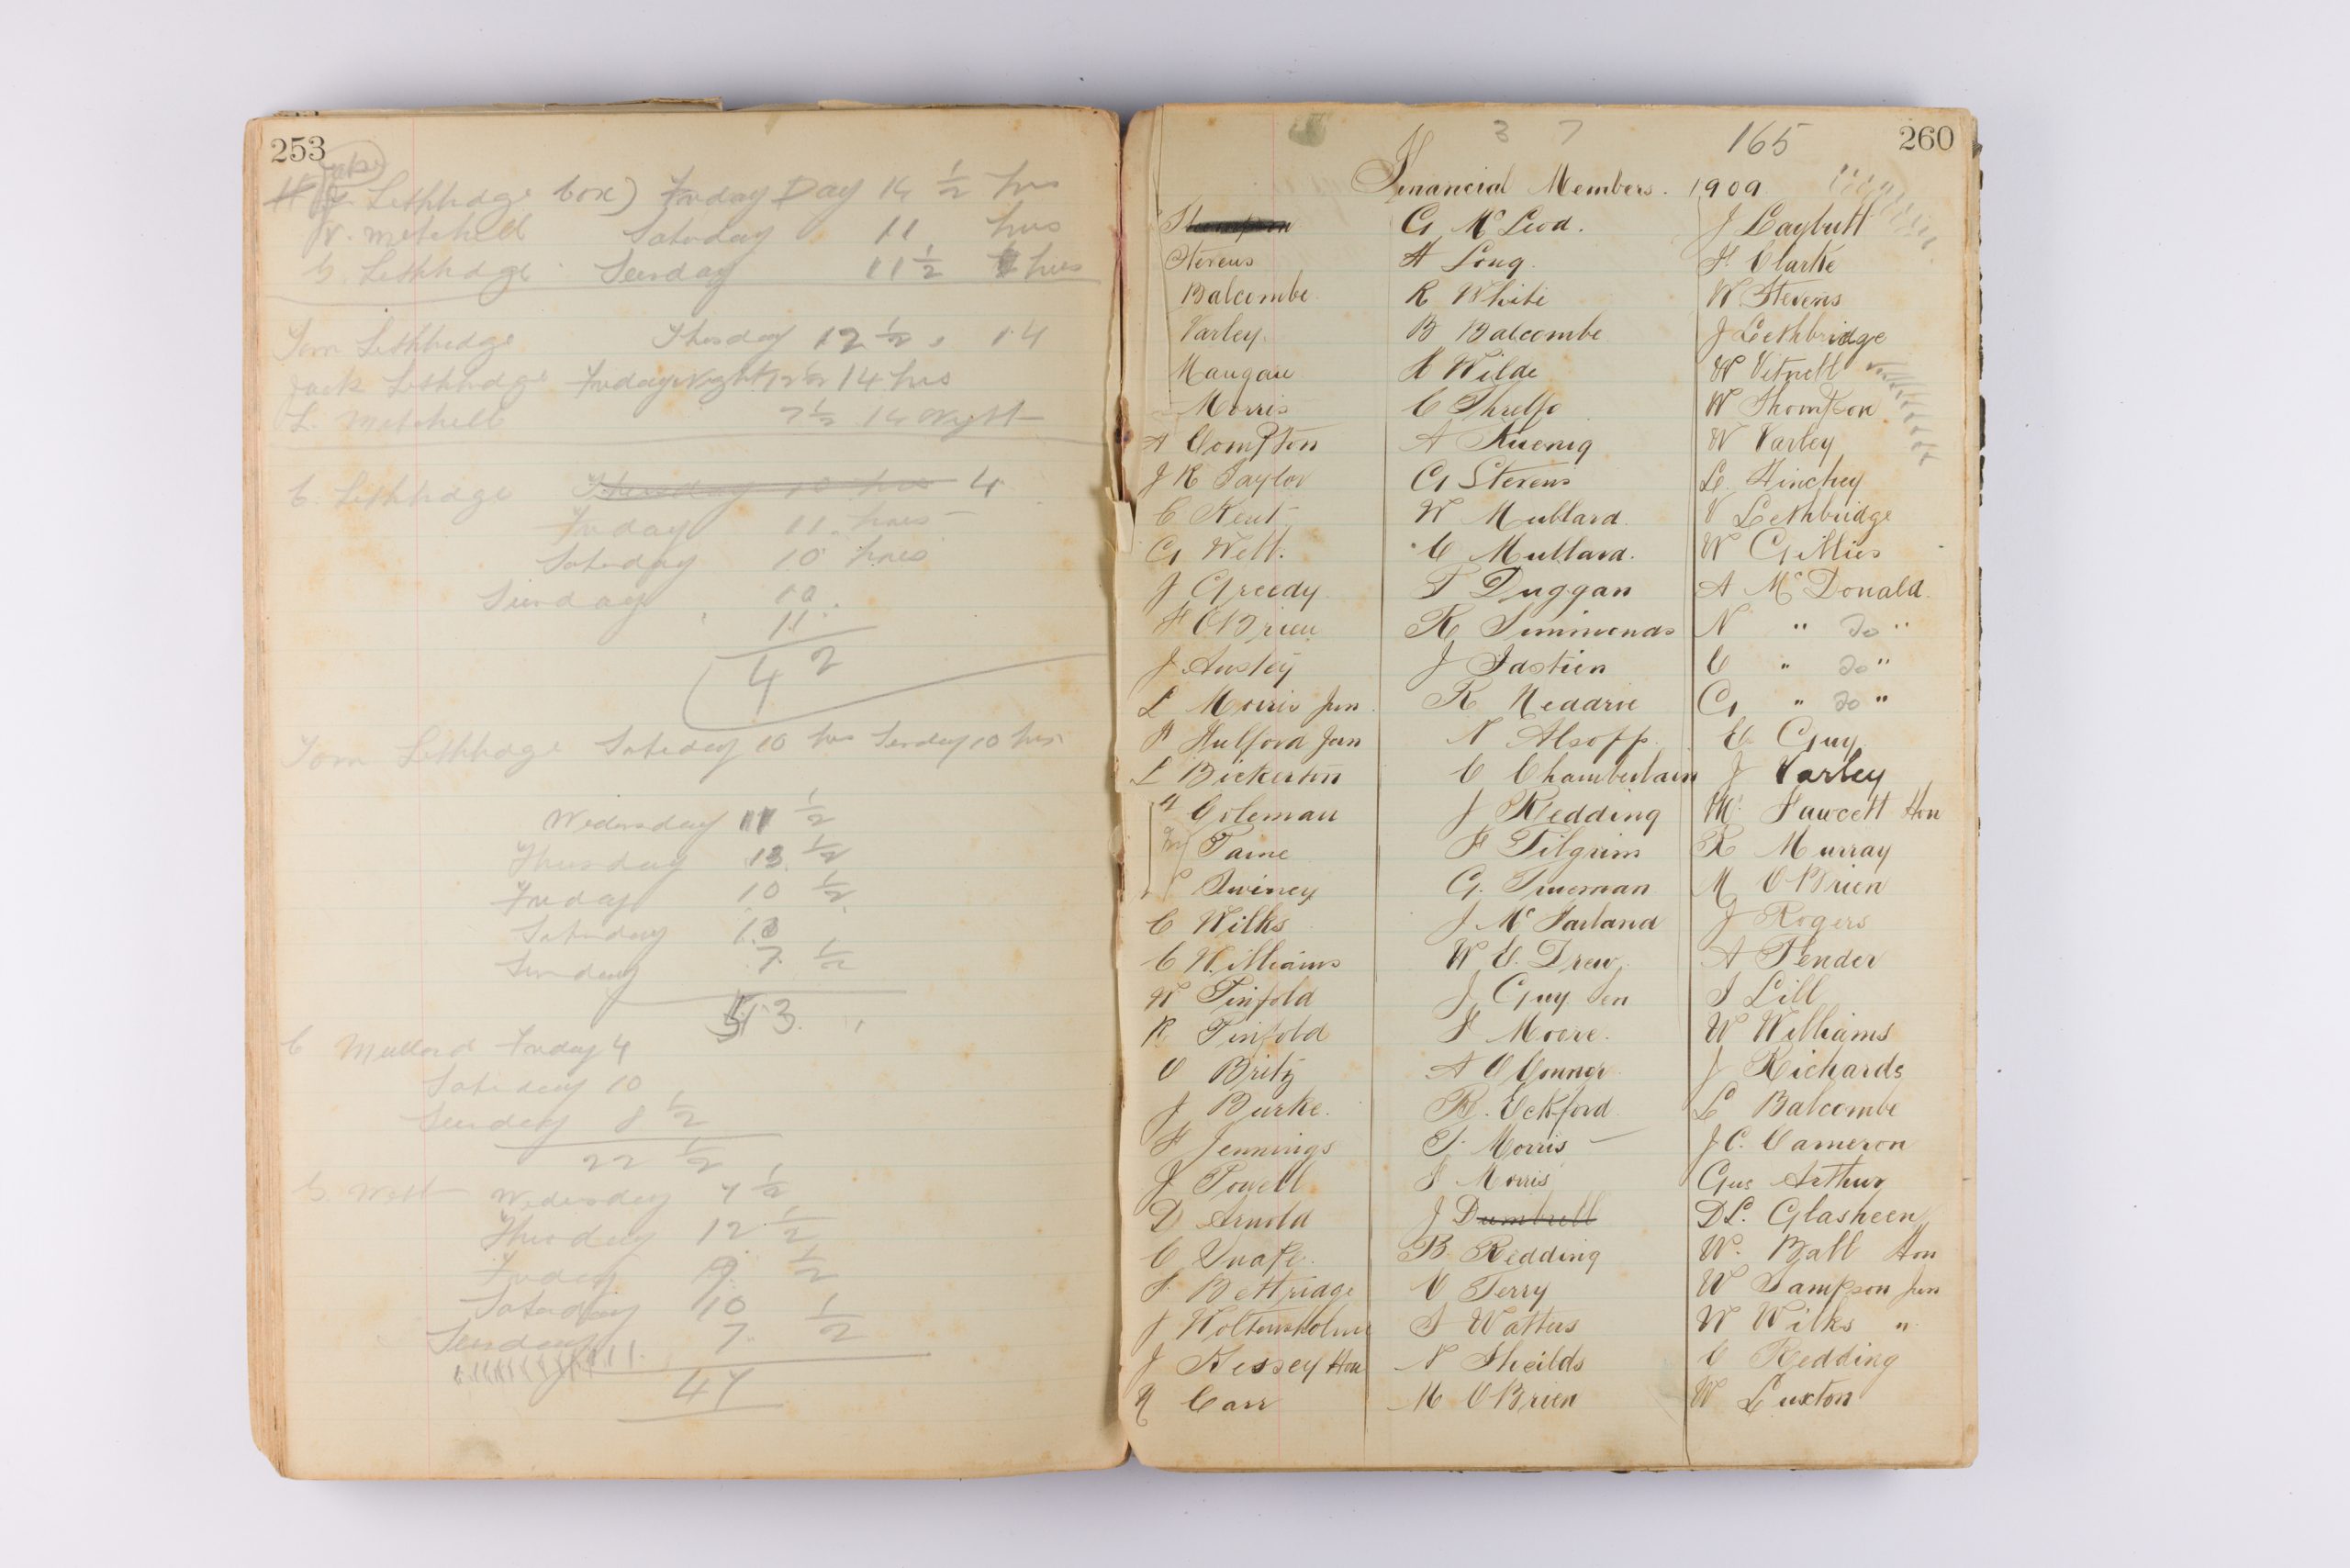 253
Lethbridge box) Friday Day 14 ½ hrs
V. Mitchell Saturday 11 hrs
G. Lethbridge Sunday 11 ½ hrs
Tom Lethbridge Thursday 12 ½ 14
Jack Lethbridge Friday Night 12 ½ 14 hrs
L. Mitchell 7 ½ 14 Night
C. Lethbridge Thursday 10 hrs 4
Friday 11 hrs
Saturday 10 hrs
Sunday 10
11
42
Tom Lethbridge Saturday 10 hrs Sunday 10 hrs
Wednesday 11 ½
Thursday 13 ½
Friday 10 ½
Saturday 10
Sunday 7 ½
53
C Mullard Friday 4
Saturday 10
Sunday 8 ½
22 ½
G. Watt Wednesday 7 ½
Thursday 12 ½
Friday 9 ½
Saturday 10 ½
Sunday 7
47
3 7 165 260
Financial Members. 1909
Thompson
Stevens
Balcombe
Varley
Mangan
Morris
A Compton
J R Taylor
C Kent
G Wett.
J Greedy
F OBrien
J Ansley
L Morris Jun
P Hulford Jun
L Bickerton
Coleman
Paine
Swiney
C Wilks
C Williams
W Pinfold
R Pinfold
O Britz
J Burke.
F Jennings
J Powell
D Arnold
C Quafe.
F. Bettridge
J Woltenholme
J Hessey Hon
R Carr
G McLeod.
A Long
R White
B Balcombe
H Wilde
C Threlfo
A Kuenig
G Stevens
W Mullard.
C Mullard.
P Duggan
R Simmonds
J Bastien
R Neddrie
N Alsopp.
C Chamberlain
J Redding
F Pilgrim
G. Trueman
J McFarland
W E. Drew.
J Guy Sen
F Moore.
A OConnor
R. Eckford
T. Morris
S Morris
J Dumbrell
B Redding
V Terry
S Watters
N Sheilds
M OBrien
J Laybutt
F Clarke
W Stevens
J Lethbridge
W Vitnell
W Thompson
W Varley
L. Hinchey
V Lethbridge
W Gillies
A McDonald.
N " Do "
C " Do "
G " Do "
E Guy
J Varley
W. Fawcett Hon
R Murray
M OBrien
J Rogers
A Pender
I Lill
W Williams
J Richards
L Balcombe
J C. Cameron
Gus Arthur
D L. Glasheen
W. Ball Hon
W Sampson Jun
W Wilks "
C Redding
W Luxton